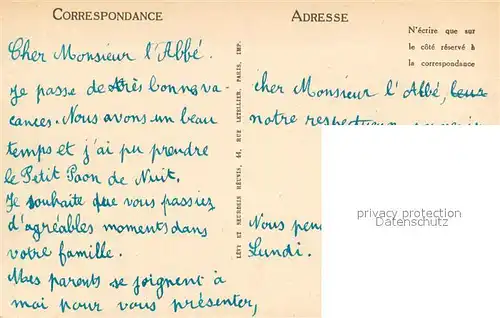 CORRESPONDANCE
Cher Monsieur l'Abbé.
Je passe de très bonnes va-
cances. Nous avons un beau
temps et j'ai pu prendre
le Petit Paon de Nuit.
Je souhaite que vous passiez
d'agréables moments dans
votre famille.
Mes parents se joignent à
moi pour vous présenter,
LÉVY ET NEURDEIN RÉUNIS, 44, RUE LETELLIER, PARIS, IMP.
ADRESSE
N'écrire que sur
le côté réservé à
la correspondance
cher Monsieur l'Abbé,
notre respectueux
Nous
Lundi.
privacy protection
Datenschutz